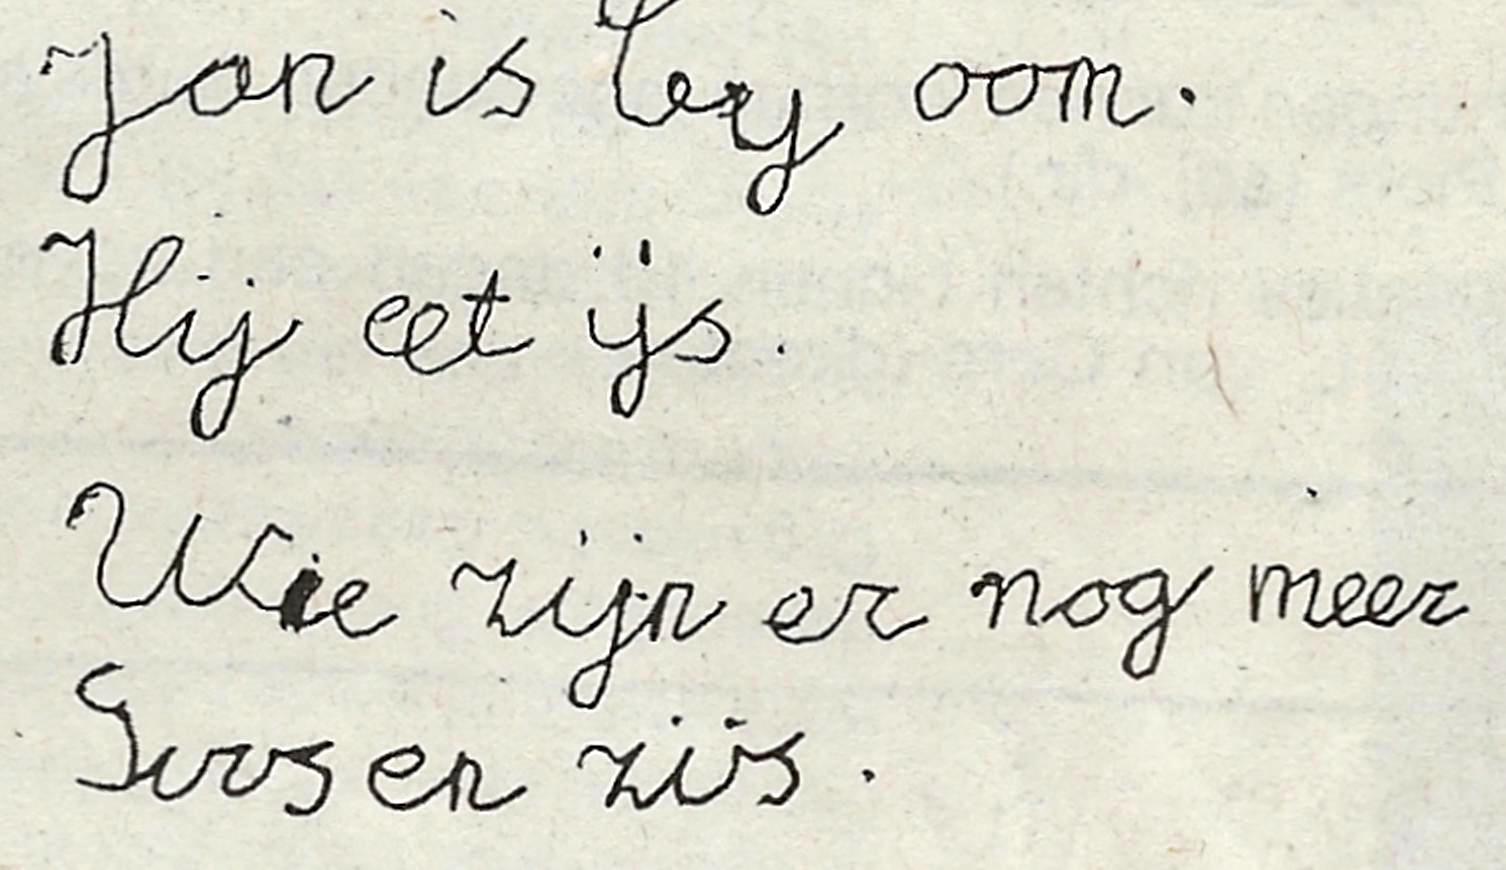 Jan is bij oom.
Hij eet ijs.
Wie zijn er nog meer
en zus.